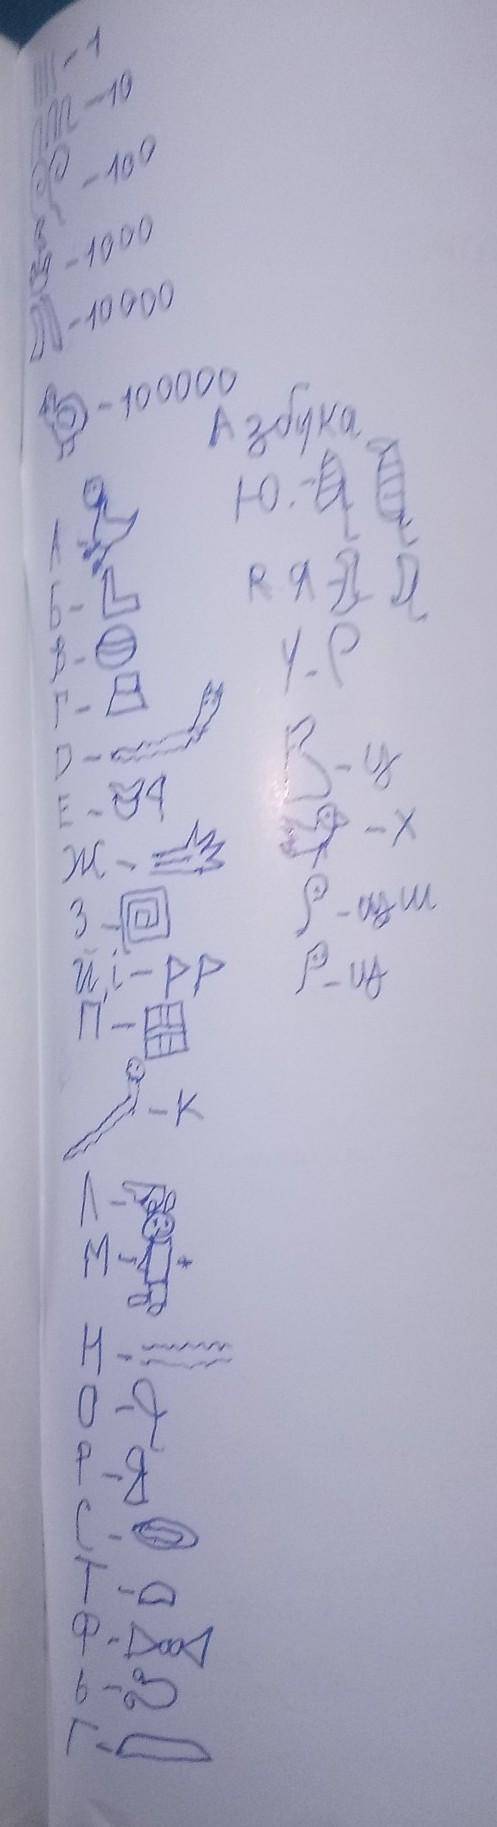 - 1
- 10
- 100
- 1000
- 10000
- 100000
Азбука
А -
Б -
В -
Г -
D -
Е -
Ж -
З -
Й, і -
П -
- К
Л -
М -
Н -
О -
Р -
С -
Т -
Ф -
Ь -
Г -
Ю. -
R Я -
У -
- Х